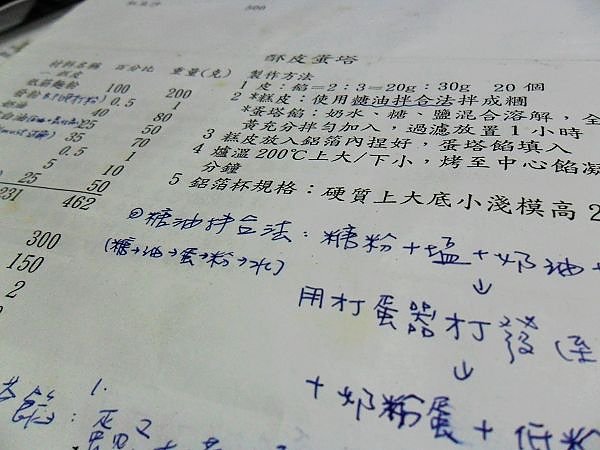 500
酥皮蛋塔
材料名稱 百分比 重量(克)
製作方法
1 皮:餡=2:3=20g:30g 20個
低筋麵粉 100 200
2 *糕皮:使用糖油拌合法拌成糰
0.5 1
*蛋塔餡:奶水、糖、鹽混合溶解,全
奶油 40 80
黃充分拌勻加入,過濾放置1小時
25 50
3 糕皮放入鋁箔內捏好,蛋塔餡填入
35 70
4 爐溫200℃上大/下小,烤至中心餡凝
0.5 1
分鐘
5 10
5 鋁箔杯規格:硬質上大底小淺模高2
25 50
231 462
糖油拌合法:糖粉+塩+奶油+
(糖→油→蛋→粉→水)
↓
300
150
2
用打蛋器打發(至
↓
+奶粉蛋+低粉
餡: 1.
2